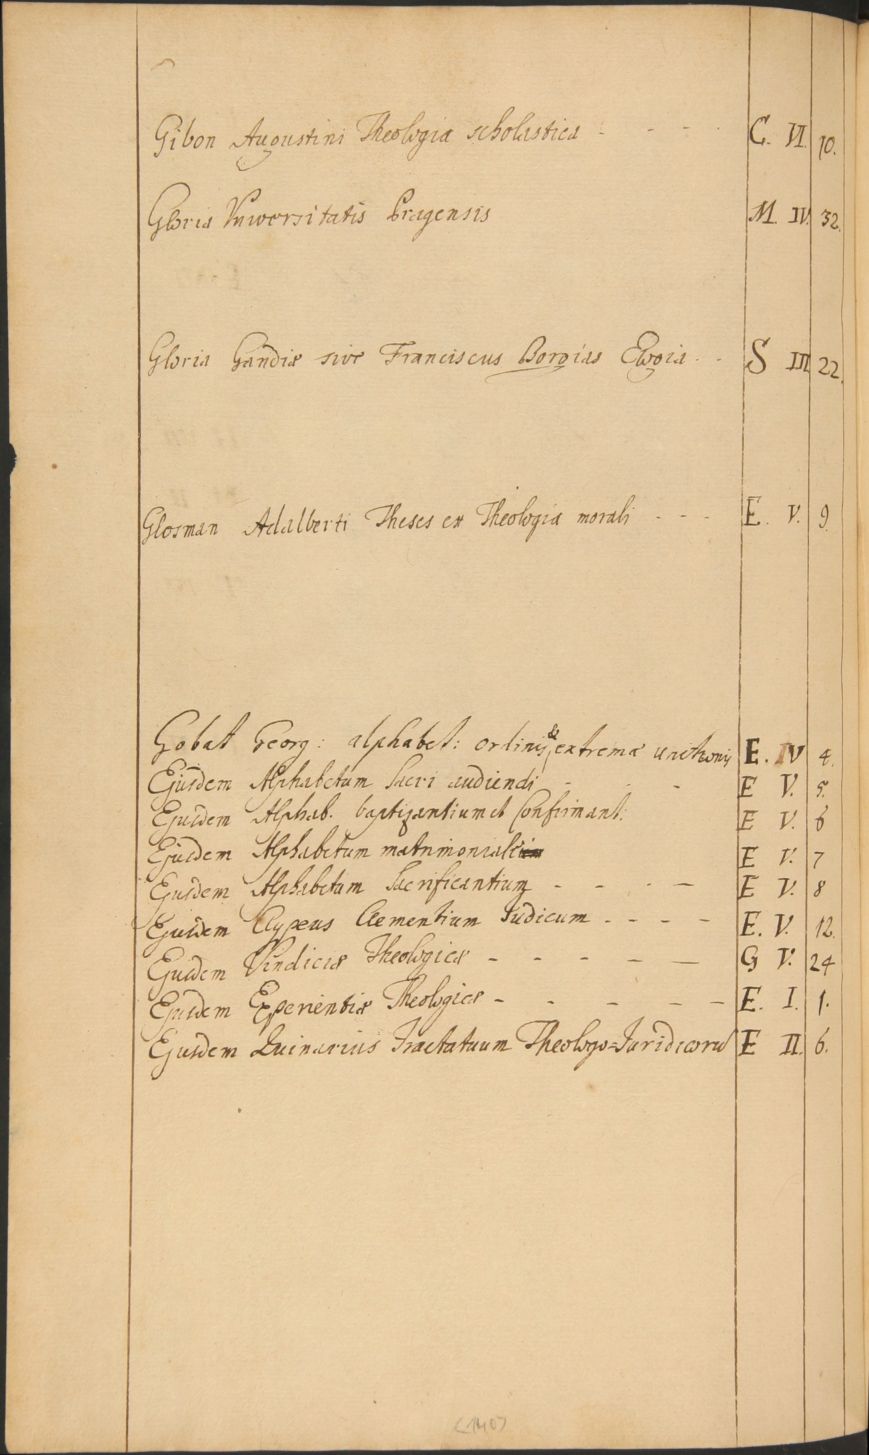 Gibon Augustini Theologia scholastica - - - - C. VI. 10.
Gloria Universitatis Pragensis M. IV. 32.
Gloria Gandiæ sive Franciscus Borgias Elogia - - S III 22.
Glosman Adalberti Theses ex Theologia morali - - - E. V. 9.
Gobat Georg: alphabet: ordinis, & extremæ unctionis E. IV 4.
Ejusdem Alphabetum Sacri audiendi - - - E V. 5.
Ejusdem Alphab. baptizantium et Confirmant: E V. 6
Ejusdem Alphabetum matrimoniale E V. 7
Ejusdem Alphabetum Sacrificantium - - - - E V. 8
Ejusdem Clypeus Clementium Judicum - - - - E. V. 12.
Ejusdem Vindiciæ Theologicæ - - - - - G V. 24
Ejusdem Experientiæ Theologicæ - - - - - E. I. 1.
Ejusdem Quinarius Tractatuum Theologo=Juridicorū E II. 6.